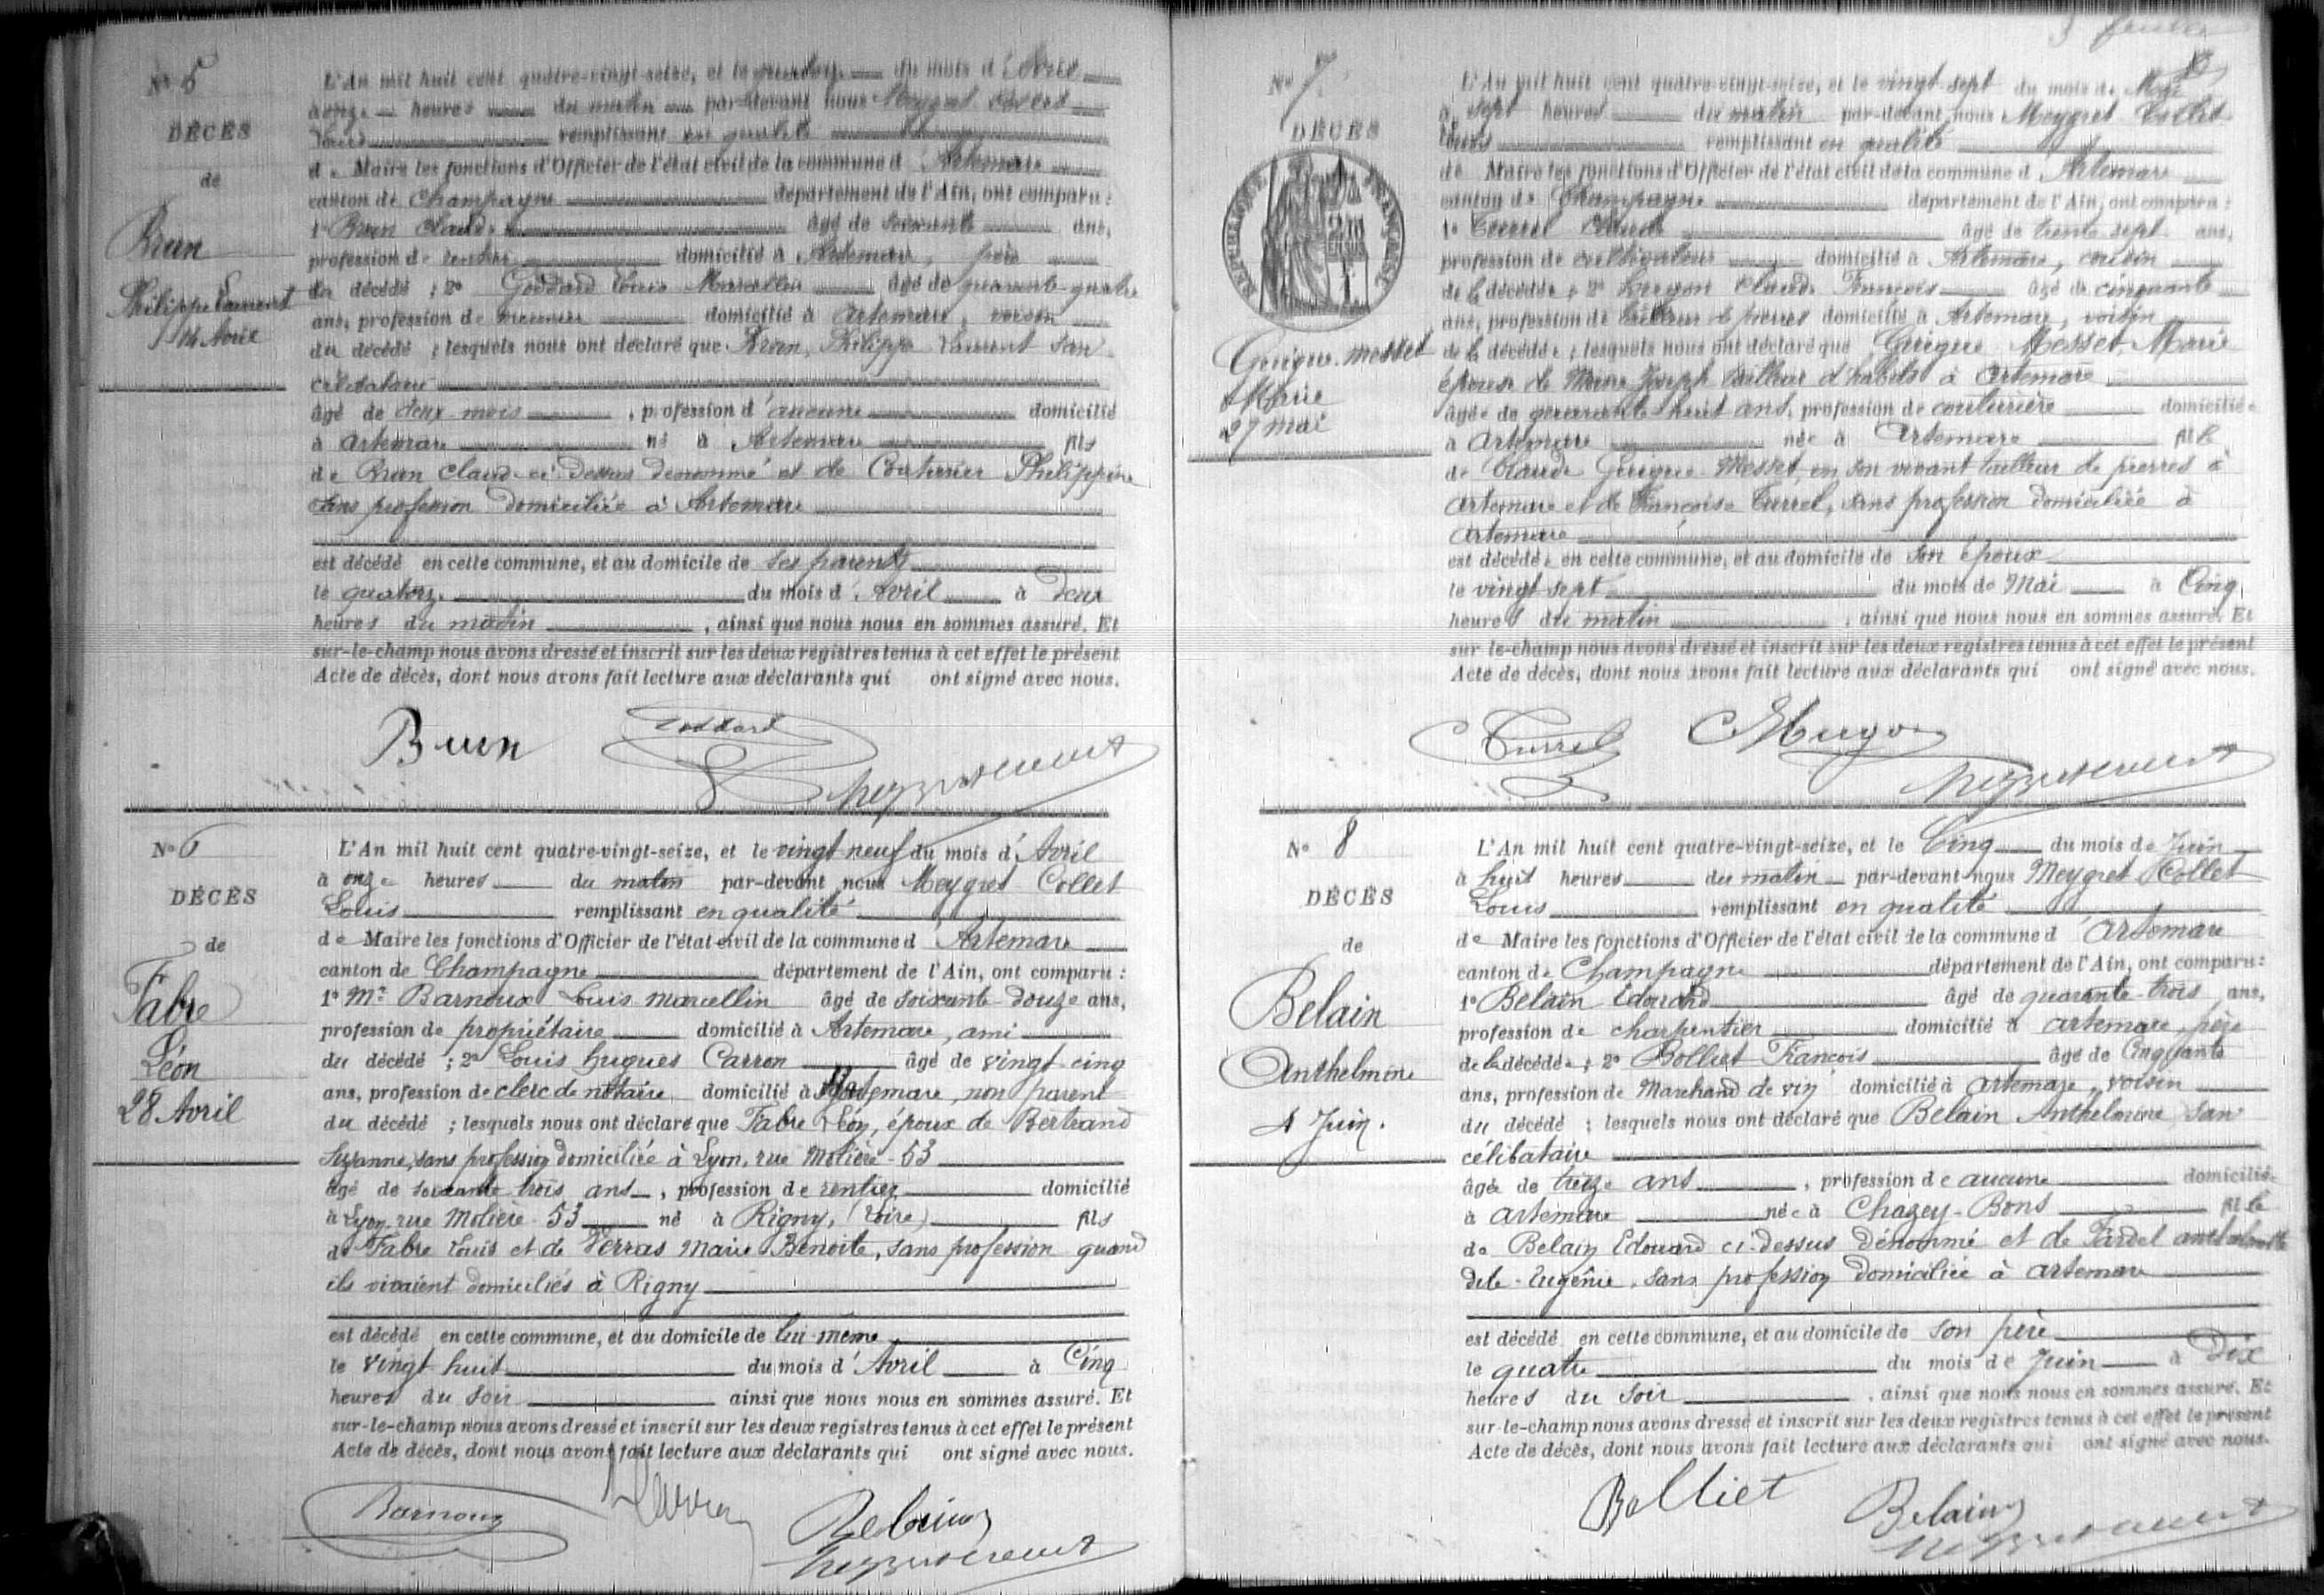 N° 5
DÉCÈS
de
Brun
Philippe Laurent
14 Avril
L'An mil huit cent quatre-vingt-seize, et le quatorze du mois d'Avril
à onze heures du matin par-devant nous Meygret Collet
Louis remplissant en qualité
de Maire les fonctions d'Officier de l'état civil de la commune d'Artemare
canton de Champagne département de l'Ain, ont comparu :
1° Brun Claude âgé de soixante ans,
profession de rentier domicilié à Artemare, père
du décédé ; 2° Goddard Louis Marcellin âgé de quarante-quatre
ans, profession de domicilié à Artemare, voisin
du décédé ; lesquels nous ont déclaré que Brun, Philippe Laurent son
célibataire
âgé de deux mois, profession d'aucune domicilié
à Artemare né à Artemare fils
de Brun Claude ci-dessus dénommé et de Couturier Philippine
sans profession domiciliée à Artemare
est décédé en cette commune, et au domicile de ses parents
le quatorze du mois d'Avril à deux
heures du matin, ainsi que nous nous en sommes assuré. Et
sur-le-champ nous avons dressé et inscrit sur les deux registres tenus à cet effet le présent
Acte de décès, dont nous avons fait lecture aux déclarants qui ont signé avec nous.
Brun Goddard
N° 6
DÉCÈS
de
Fabre
Léon
28 Avril
L'An mil huit cent quatre-vingt-seize, et le vingt neuf du mois d'Avril
à onze heures du matin par-devant nous Meygret Collet
Louis remplissant en qualité
de Maire les fonctions d'Officier de l'état civil de la commune d'Artemare
canton de Champagne département de l'Ain, ont comparu :
1° Mr Barnoux Louis Marcellin âgé de soixante-douze ans,
profession de propriétaire domicilié à Artemare, ami
du décédé ; 2° Louis Hugues Carron âgé de vingt cinq
ans, profession de clerc de notaire domicilié à Artemare, non parent
du décédé ; lesquels nous ont déclaré que Fabre Léon, époux de Bertrand
Suzanne, sans profession domiciliée à Lyon, rue Molière - 53
âgé de soixante trois ans, profession de rentier domicilié
à Lyon, rue Molière 53 né à Rigny, (Loire) fils
de Fabre Louis et de Verras Marie Benoite, sans profession quand
ils vivaient domiciliés à Rigny
est décédé en cette commune, et au domicile de lui-même
le vingt huit du mois d'Avril à Cinq
heures du soir ainsi que nous nous en sommes assuré. Et
sur-le-champ nous avons dressé et inscrit sur les deux registres tenus à cet effet le présent
Acte de décès, dont nous avons fait lecture aux déclarants qui ont signé avec nous.
Barnoux
N° 7
DÉCÈS
RÉPUBLIQUE FRANÇAISE
Guigue-Messet
Marie
27 mai
L'An mil huit cent quatre-vingt-seize, et le vingt-sept du mois de Mai
à sept heures du matin par-devant nous Meygret Collet
Louis remplissant en qualité
de Maire les fonctions d'Officier de l'état civil de la commune d'Artemare
canton de Champagne département de l'Ain, ont comparu :
1° Turrel Claude âgé de trente sept ans,
profession de cultivateur domicilié à Artemare, cousin
de la décédée ; 2° Claude François âgé de cinquante
ans, profession de tailleur de pierres domicilié à Artemare, voisin
de la décédée ; lesquels nous ont déclaré que Guigue Messet, Marie
épouse de Joseph tailleur d'habits à Artemare
âgée de quarante-huit ans, profession de couturière domiciliée
à Artemare née à Artemare fille
de Claude Guigue-Messet, en son vivant tailleur de pierres à
Artemare et de Françoise Turrel, sans profession domiciliée à
Artemare
est décédée en cette commune, et au domicile de son époux
le vingt-sept du mois de Mai à Cinq
heures du matin, ainsi que nous nous en sommes assuré. Et
sur-le-champ nous avons dressé et inscrit sur les deux registres tenus à cet effet le présent
Acte de décès, dont nous avons fait lecture aux déclarants qui ont signé avec nous.
Turrel
N° 8
DÉCÈS
de
Belain
Anthelmine
4 Juin.
L'An mil huit cent quatre-vingt-seize, et le Cinq du mois de Juin
à huit heures du matin par-devant nous Meygret Collet
Louis remplissant en qualité
de Maire les fonctions d'Officier de l'état civil de la commune d'Artemare
canton de Champagne département de l'Ain, ont comparu :
1° Belain Edouard âgé de quarante-trois ans,
profession de charpentier domicilié à Artemare, père
de la décédée ; 2° Bolliet François âgé de Cinquante
ans, profession de Marchand de vin domicilié à Artemare, voisin
du décédé ; lesquels nous ont déclaré que Belain Anthelmine son
célibataire
âgée de treize ans, profession de aucune domiciliée
à Artemare née à Chazey-Bons fille
de Belain Edouard ci-dessus dénommé et de Tardel
dite Eugénie, sans profession domiciliée à Artemare
est décédé en cette commune, et au domicile de son père
le quatre du mois de Juin à Dix
heures du soir, ainsi que nous nous en sommes assuré. Et
sur-le-champ nous avons dressé et inscrit sur les deux registres tenus à cet effet le présent
Acte de décès, dont nous avons fait lecture aux déclarants qui ont signé avec nous.
Bolliet Belain